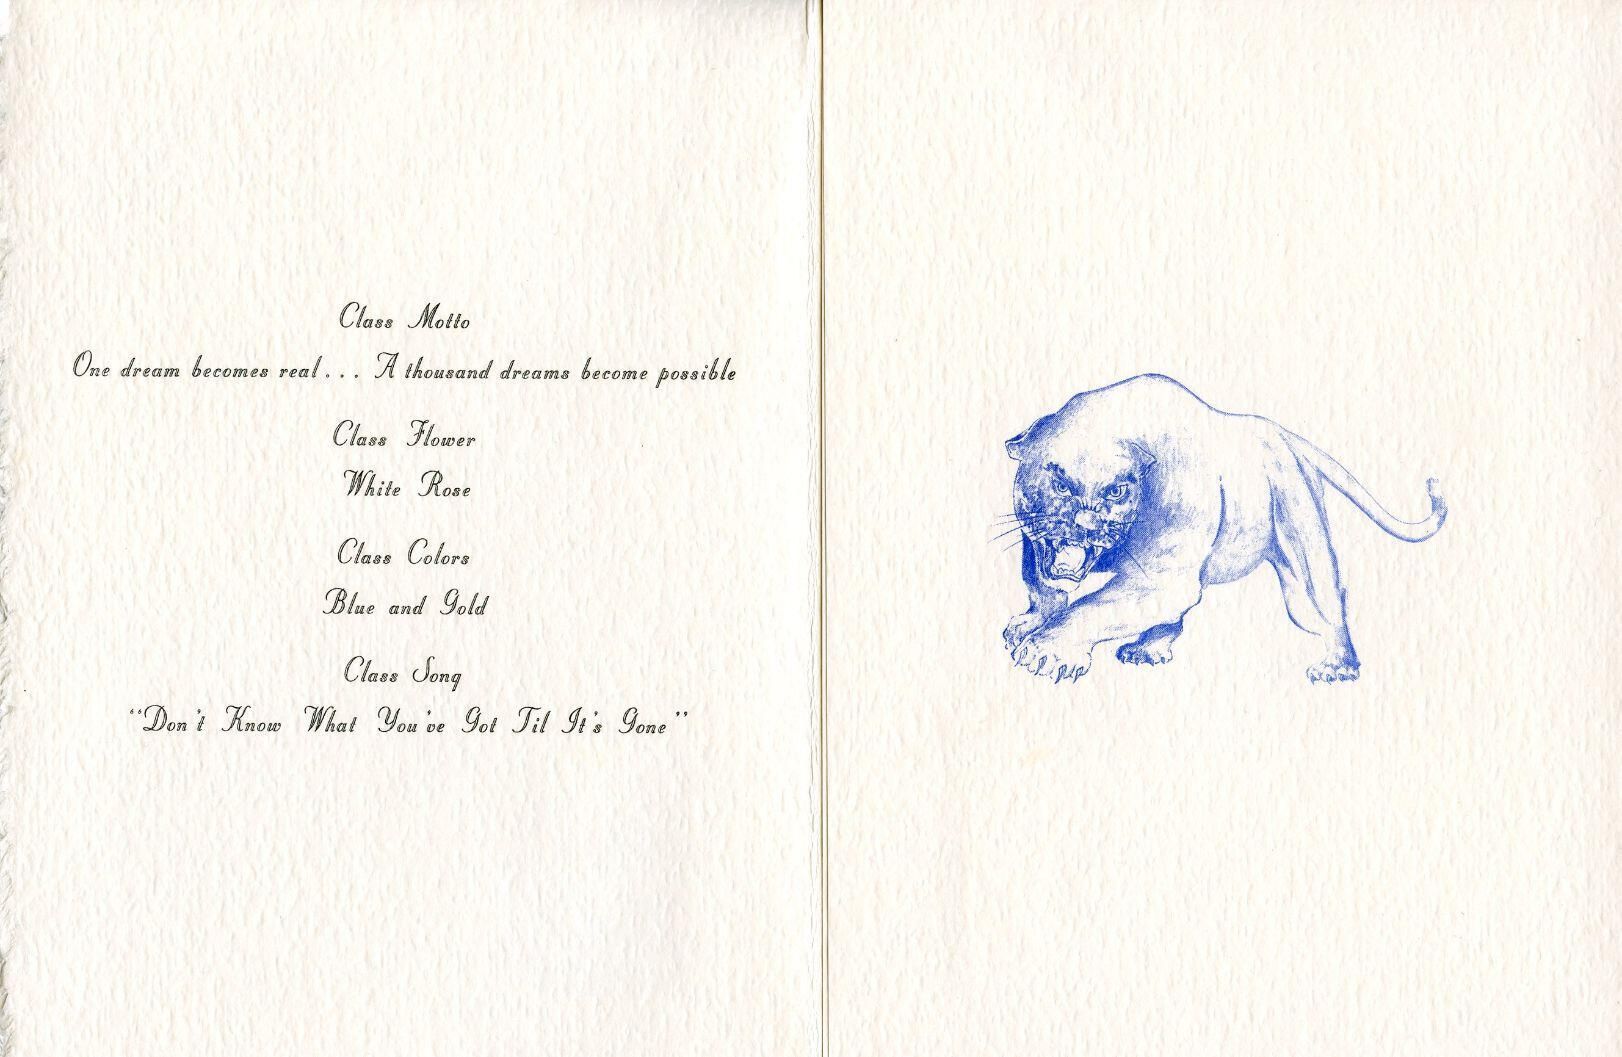 Class Motto
One dream becomes real... A thousand dreams become possible
Class Flower
White Rose
Class Colors
Blue and Gold
Class Song
“Don't Know What You've Got Til It's Gone”